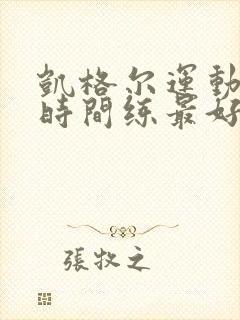 凱格尔運動
時間练最好
張牧之